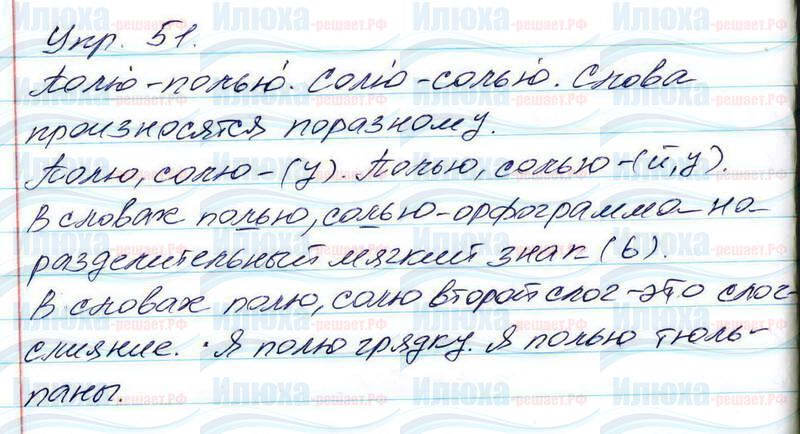 Упр. 51.
Полю́ - полью́. Солю́ - солью́. Слова
произносятся поразному.
Полю, солю - (у). Полью, солью - (й, у).
В словах полью, солью - орфограмма на
разделительный мягкий знак (ь).
В словах полю, солю второй слог - это слог-
слияние. Я полю грядку. Я полью тюль-
паны.
Илюха-решает.РФ